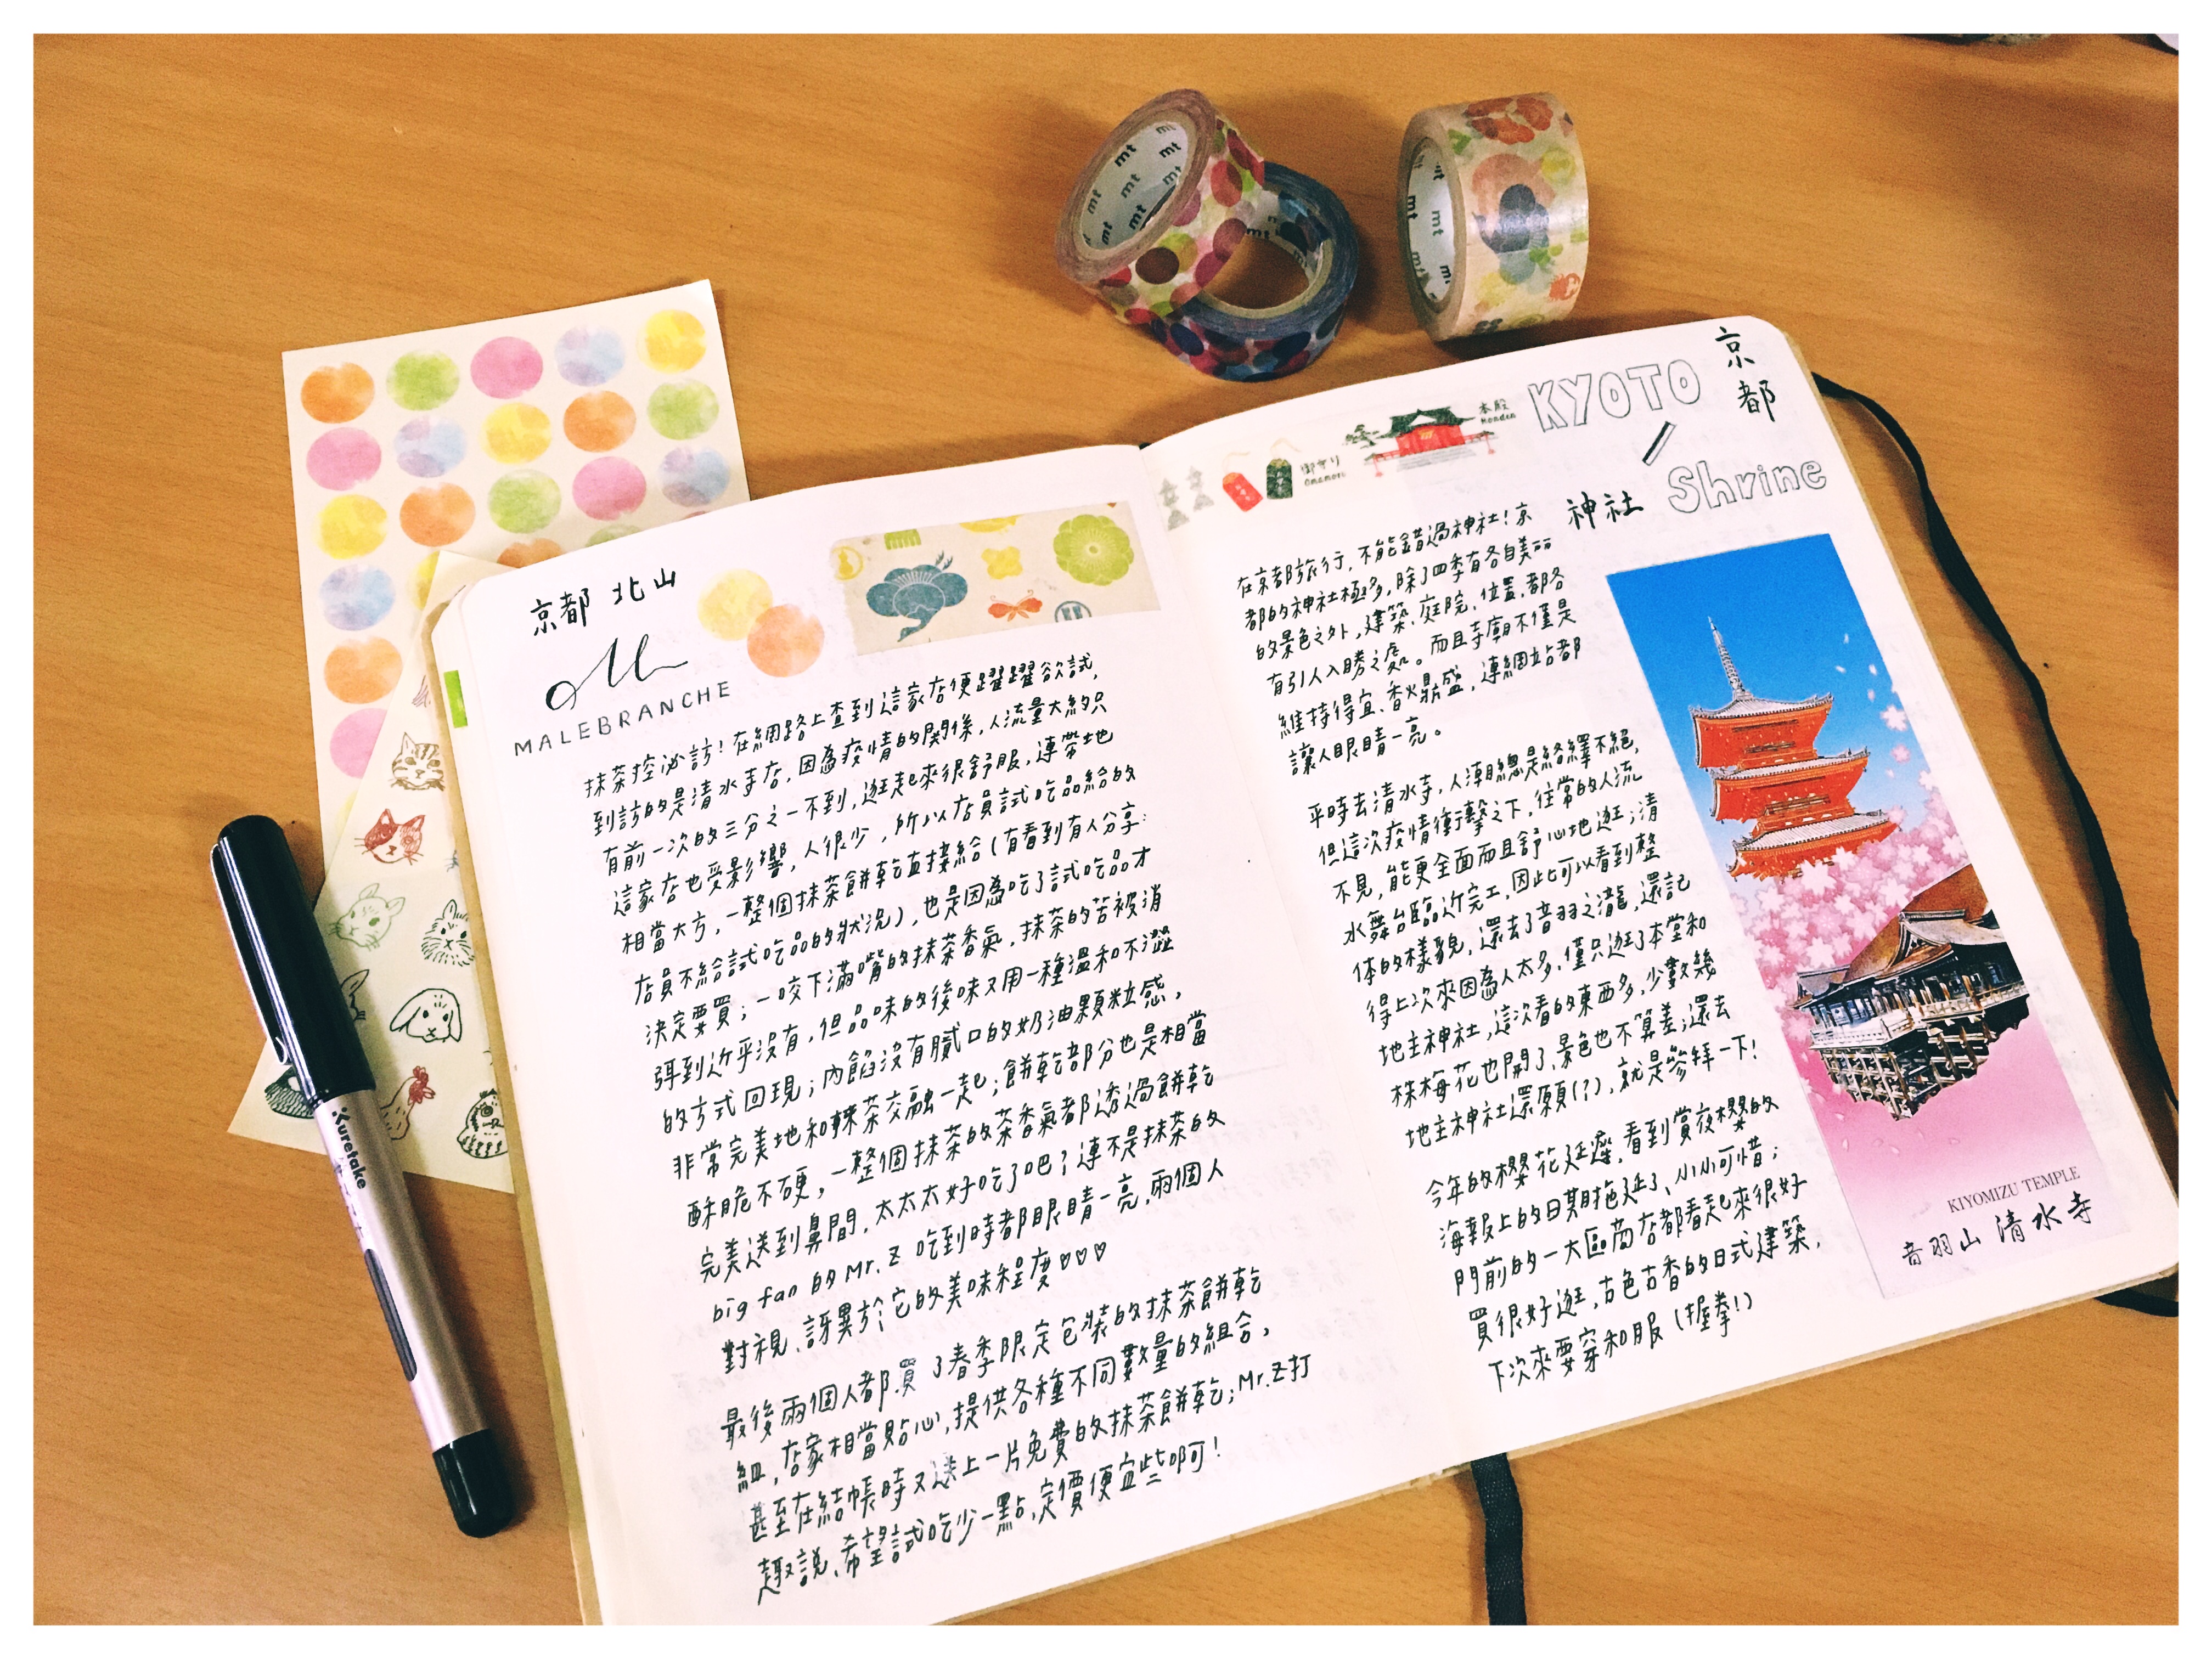 京都 北山
MALEBRANCHE
抹茶控必訪！在網路上查到這家店便躍躍欲試，
到訪的是清水寺店，因為疫情的關係，人流量大約只
有前一次的三分之一不到，逛起來很舒服，連帶地
這家店也受影響，人很少，所以店員試吃品給的
相當大方，一整個抹茶餅乾直接給（有看到有人分享：
店員不給試吃品的狀況），也是因為吃了試吃品才
決定要買；一咬下滿嘴的抹茶香氣，抹茶的苦被消
弭到近乎沒有，但品味的後味又用一種溫和不澀
的方式回現；內餡沒有膩口的奶油顆粒感，
非常完美地和抹茶交融一起；餅乾部分也是相當
酥脆不硬，一整個抹茶的茶香氣都透過餅乾
完美送到鼻間，太太太好吃了吧？連不是抹茶的
big fan 的 Mr. Z 吃到時都眼睛一亮，兩個人
對視、訝異於它的美味程度♡♡♡
最後兩個人都買了春季限定包裝的抹茶餅乾
組，店家相當貼心，提供各種不同數量的組合，
甚至在結帳時又送上一片免費的抹茶餅乾；Mr.Z打
趣說、希望試吃少一點，定價便宜些啊！
御守り
Omamori
本殿
Honden
KYOTO
京都
神社 Shrine
在京都旅行，不能錯過神社！京
都的神社極多，除了四季有各自美丽
的景色之外，建築、庭院、位置，都各
有引人入勝之處。而且寺廟不僅是
維持得宜、香火鼎盛，連網站都
讓人眼睛一亮。
平時去清水寺，人潮總是絡繹不絕，
但這次疫情衝擊之下，往常的人流
不見，能更全面而且舒心地逛；清
水舞台臨近完工，因此可以看到整
体的樣貌，還去了音羽之瀧，還記
得上次來因為人太多，僅只逛了本堂和
地主神社，這次看的東西多，少數幾
株梅花也開了，景色也不算差；還去
地主神社還願(?)，就是參拜一下！
今年的櫻花延遲，看到賞夜櫻的
海報上的日期拖延了、小小可惜；
門前的一大區商店都看起來很好
買很好逛，古色古香的日式建築，
下次來要穿和服（握拳！）
KIYOMIZU TEMPLE
音羽山 清水寺
mt
mt
mt
Kuretake